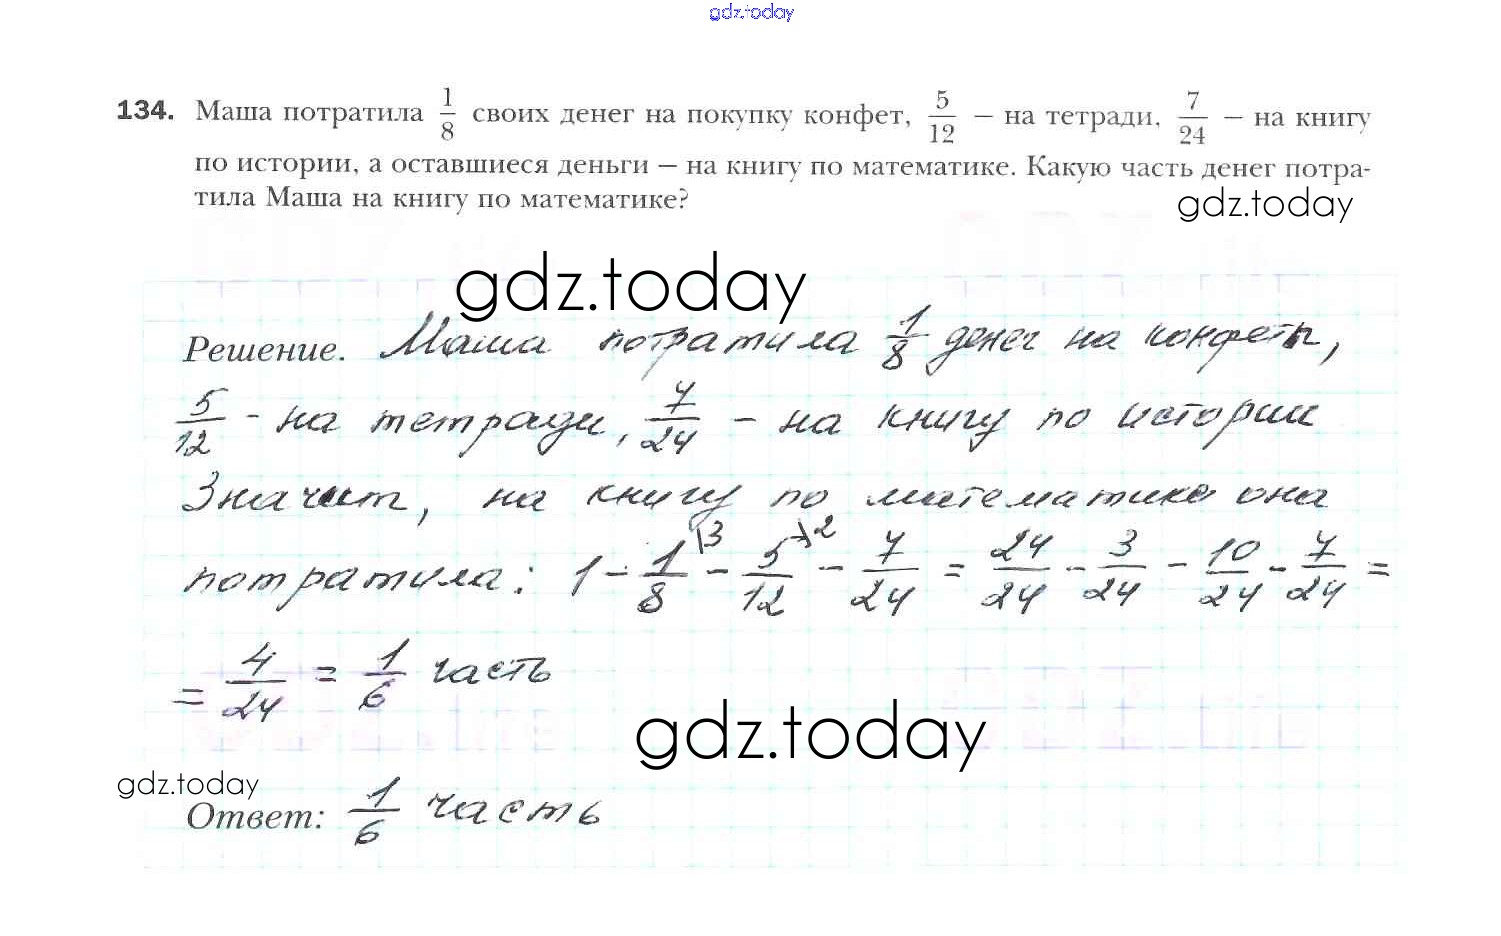 gdz.today
134. Маша потратила 1/8 своих денег на покупку конфет, 5/12 – на тетради, 7/24 – на книгу
по истории, а оставшиеся деньги – на книгу по математике. Какую часть денег потра-
тила Маша на книгу по математике?
gdz.today
gdz.today
Решение. Маша потратила 1/8 денег на конфеты,
5/12 - на тетради, 7/24 - на книгу по истории
Значит, на книгу по математике она
потратила: 1 - 1/8\3 - 5/12\2 - 7/24 = 24/24 - 3/24 - 10/24 - 7/24 =
= 4/24 = 1/6 часть
gdz.today
gdz.today
Ответ: 1/6 часть